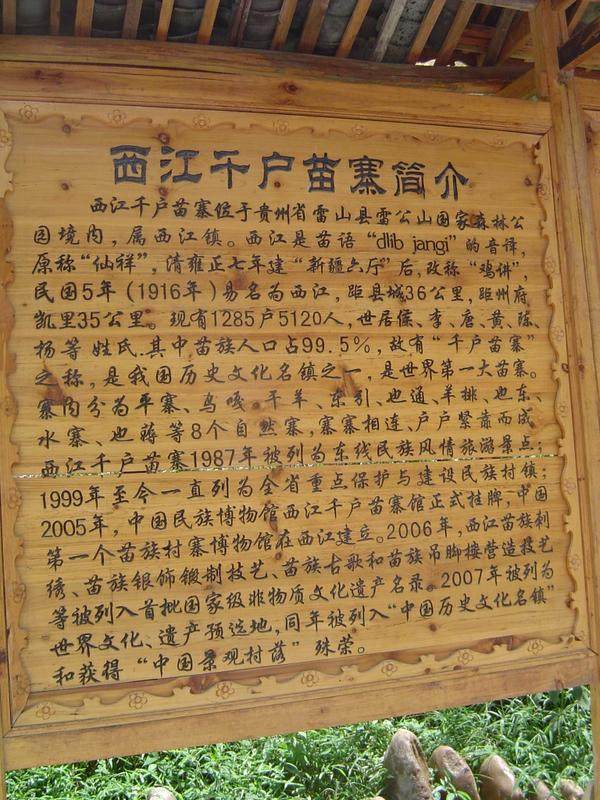 西江千户苗寨简介
西江千户苗寨位于贵州省雷山县雷公山国家森林公
园境内，属西江镇。西江是苗语“dlib jangi”的音译，
原称“仙祥”，清雍正七年建“新疆六厅”后，改称“鸡讲”，
民国5年（1916年）易名为西江，距县城36公里，距州府
凯里35公里。现有1285户5120人，世居侯、李、唐、黄、陈、
杨等姓氏.其中苗族人口占99.5%，故有“千户苗寨”
之称，是我国历史文化名镇之一，是世界第一大苗寨。
寨内分为平寨、乌嘎.干羊、东引、也通、羊排、也东、
水寨、也薅等8个自然寨，寨寨相连、户户紧靠而成
西江千户苗寨1987年被列为东线民族风情旅游景点；
1999年至今一直列为全省重点保护与建设民族村镇；
2005年，中国民族博物馆西江千户苗寨馆正式挂牌，中国
第一个苗族村寨博物馆在西江建立。2006年，西江苗族刺
绣、苗族银饰锻制技艺、苗族古歌和苗族吊脚楼营造技艺
等被列入首批国家级非物质文化遗产名录。2007年被列为
世界文化、遗产预选地，同年被列入“中国历史文化名镇”
和获得“中国景观村落”殊荣。